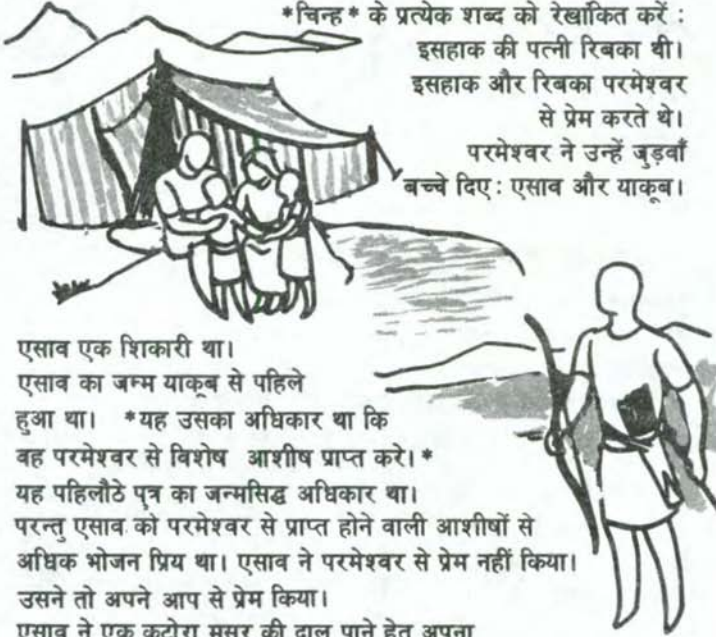 *चिन्ह* के प्रत्येक शब्द को रेखांकित करें :
इसहाक की पत्नी रिबका थी।
इसहाक और रिबका परमेश्वर
से प्रेम करते थे।
परमेश्वर ने उन्हें जुड़वाँ
बच्चे दिए : एसाव और याकूब।
एसाव एक शिकारी था।
एसाव का जन्म याकूब से पहिले
हुआ था। *यह उसका अधिकार था कि
वह परमेश्वर से विशेष आशीष प्राप्त करे।*
यह पहिलौठे पुत्र का जन्मसिद्ध अधिकार था।
परन्तु एसाव को परमेश्वर से प्राप्त होने वाली आशीषों से
अधिक भोजन प्रिय था। एसाव ने परमेश्वर से प्रेम नहीं किया।
उसने तो अपने आप से प्रेम किया।
एसाव ने एक कटोरा मसूर की दाल पाने हेतु अपना